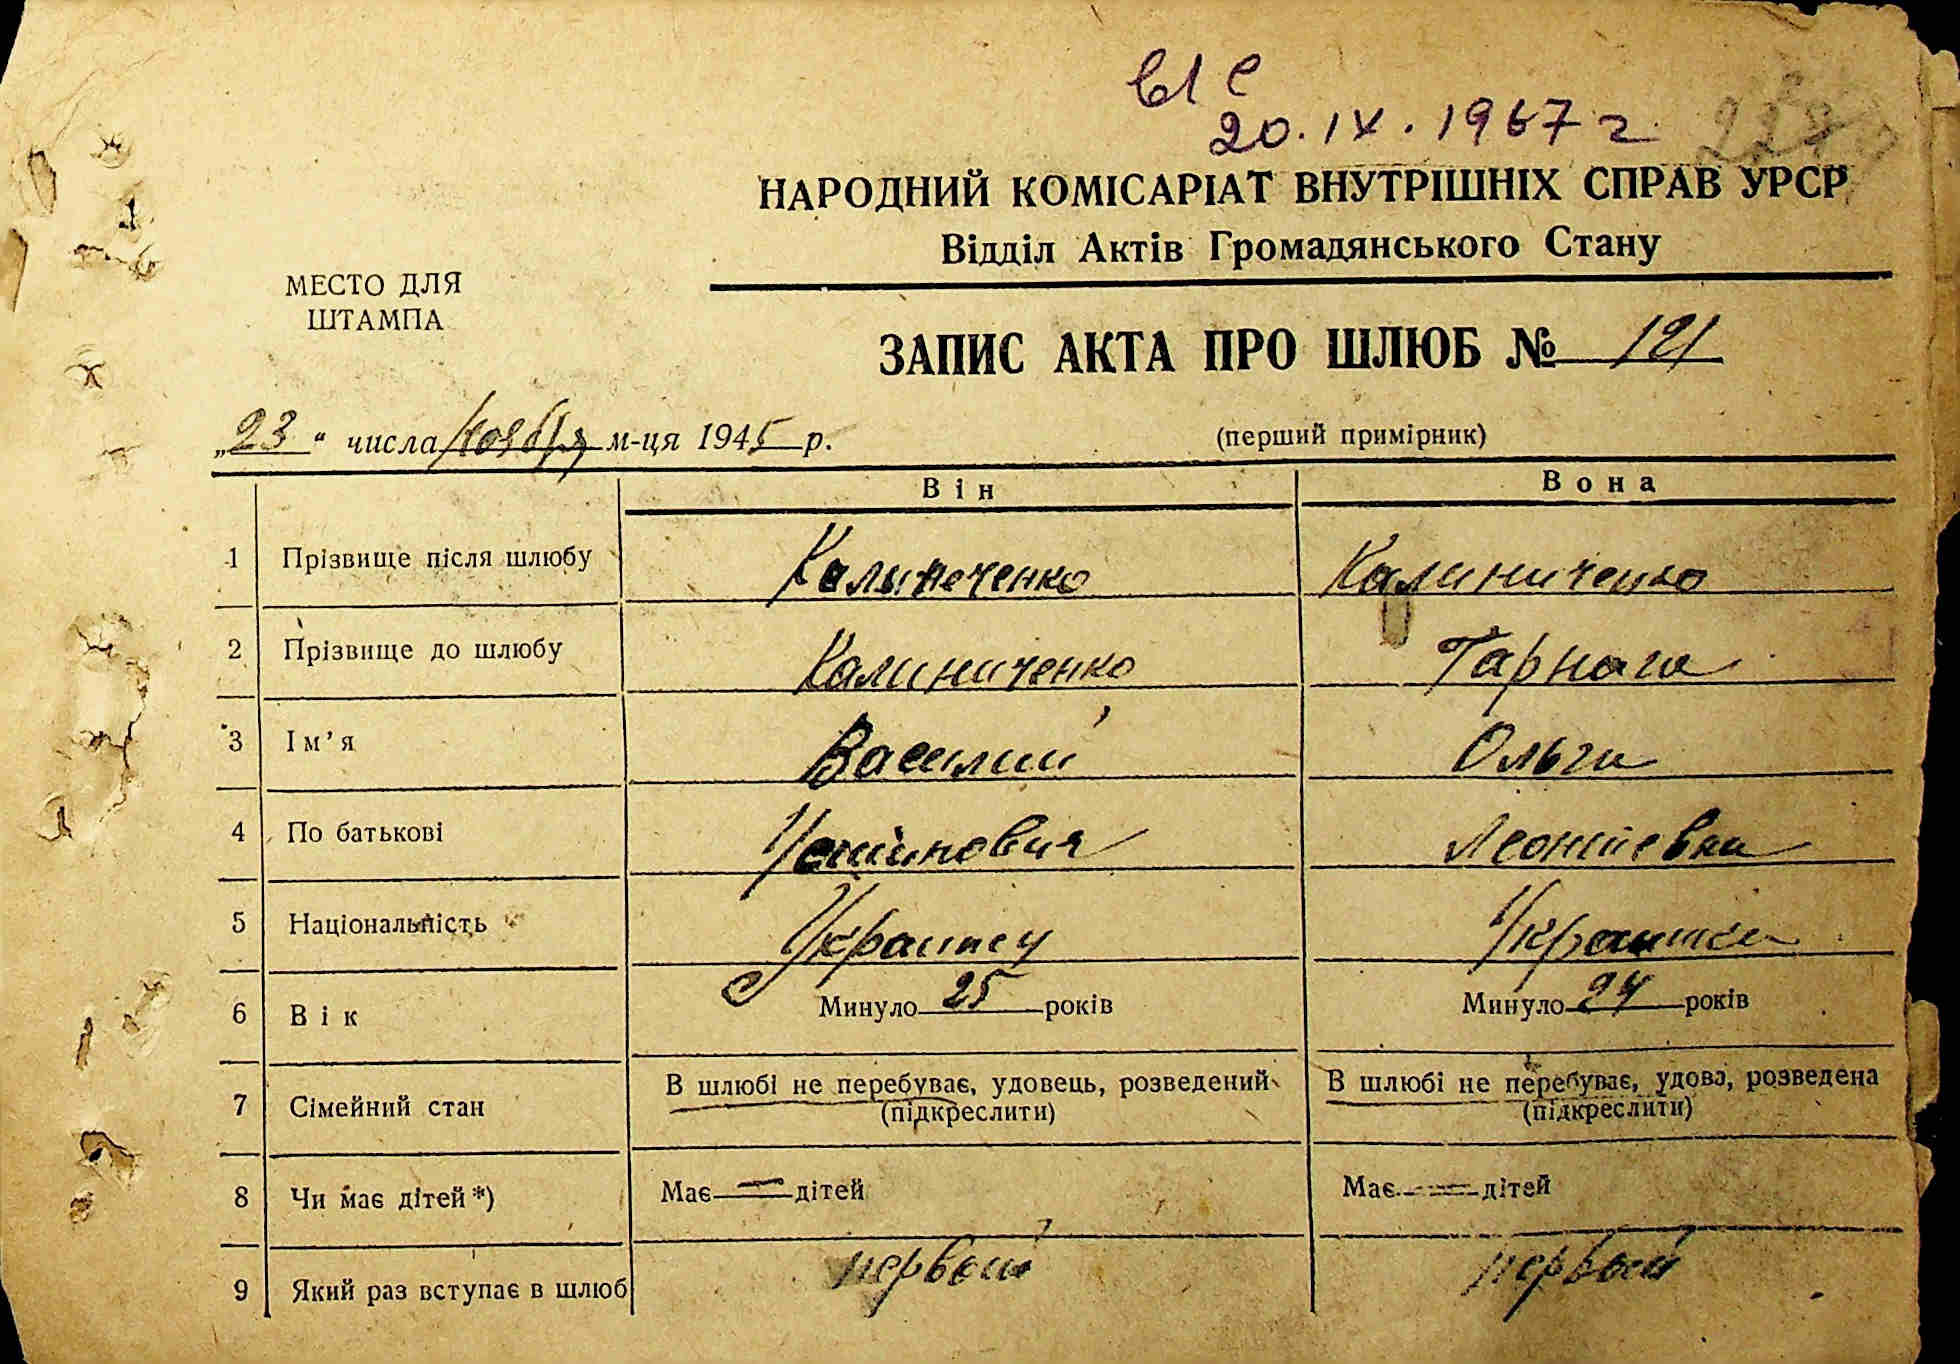 20.IX.1967 г
НАРОДНИЙ КОМІСАРІАТ ВНУТРІШНІХ СПРАВ УРСР
Відділ Актів Громадянського Стану
МЕСТО ДЛЯ
ШТАМПА
ЗАПИС АКТА ПРО ШЛЮБ № 121
„23“ числа ноября м-ця 1945 р.
(перший примірник)
Він Вона
1 Прізвище після шлюбу Калиниченко Калиниченко
2 Прізвище до шлюбу Калиниченко Гарнага
3 Ім'я Василий Ольга
4 По батькові
5 Національність Украинец Украинка
6 Вік Минуло 25 років Минуло 24 років
7 Сімейний стан В шлюбі не перебуває, удовець, розведений В шлюбі не перебуває, удова, розведена
(підкреслити) (підкреслити)
8 Чи має дітей *) Має — дітей Має — дітей
9 Який раз вступає в шлюб первый первый